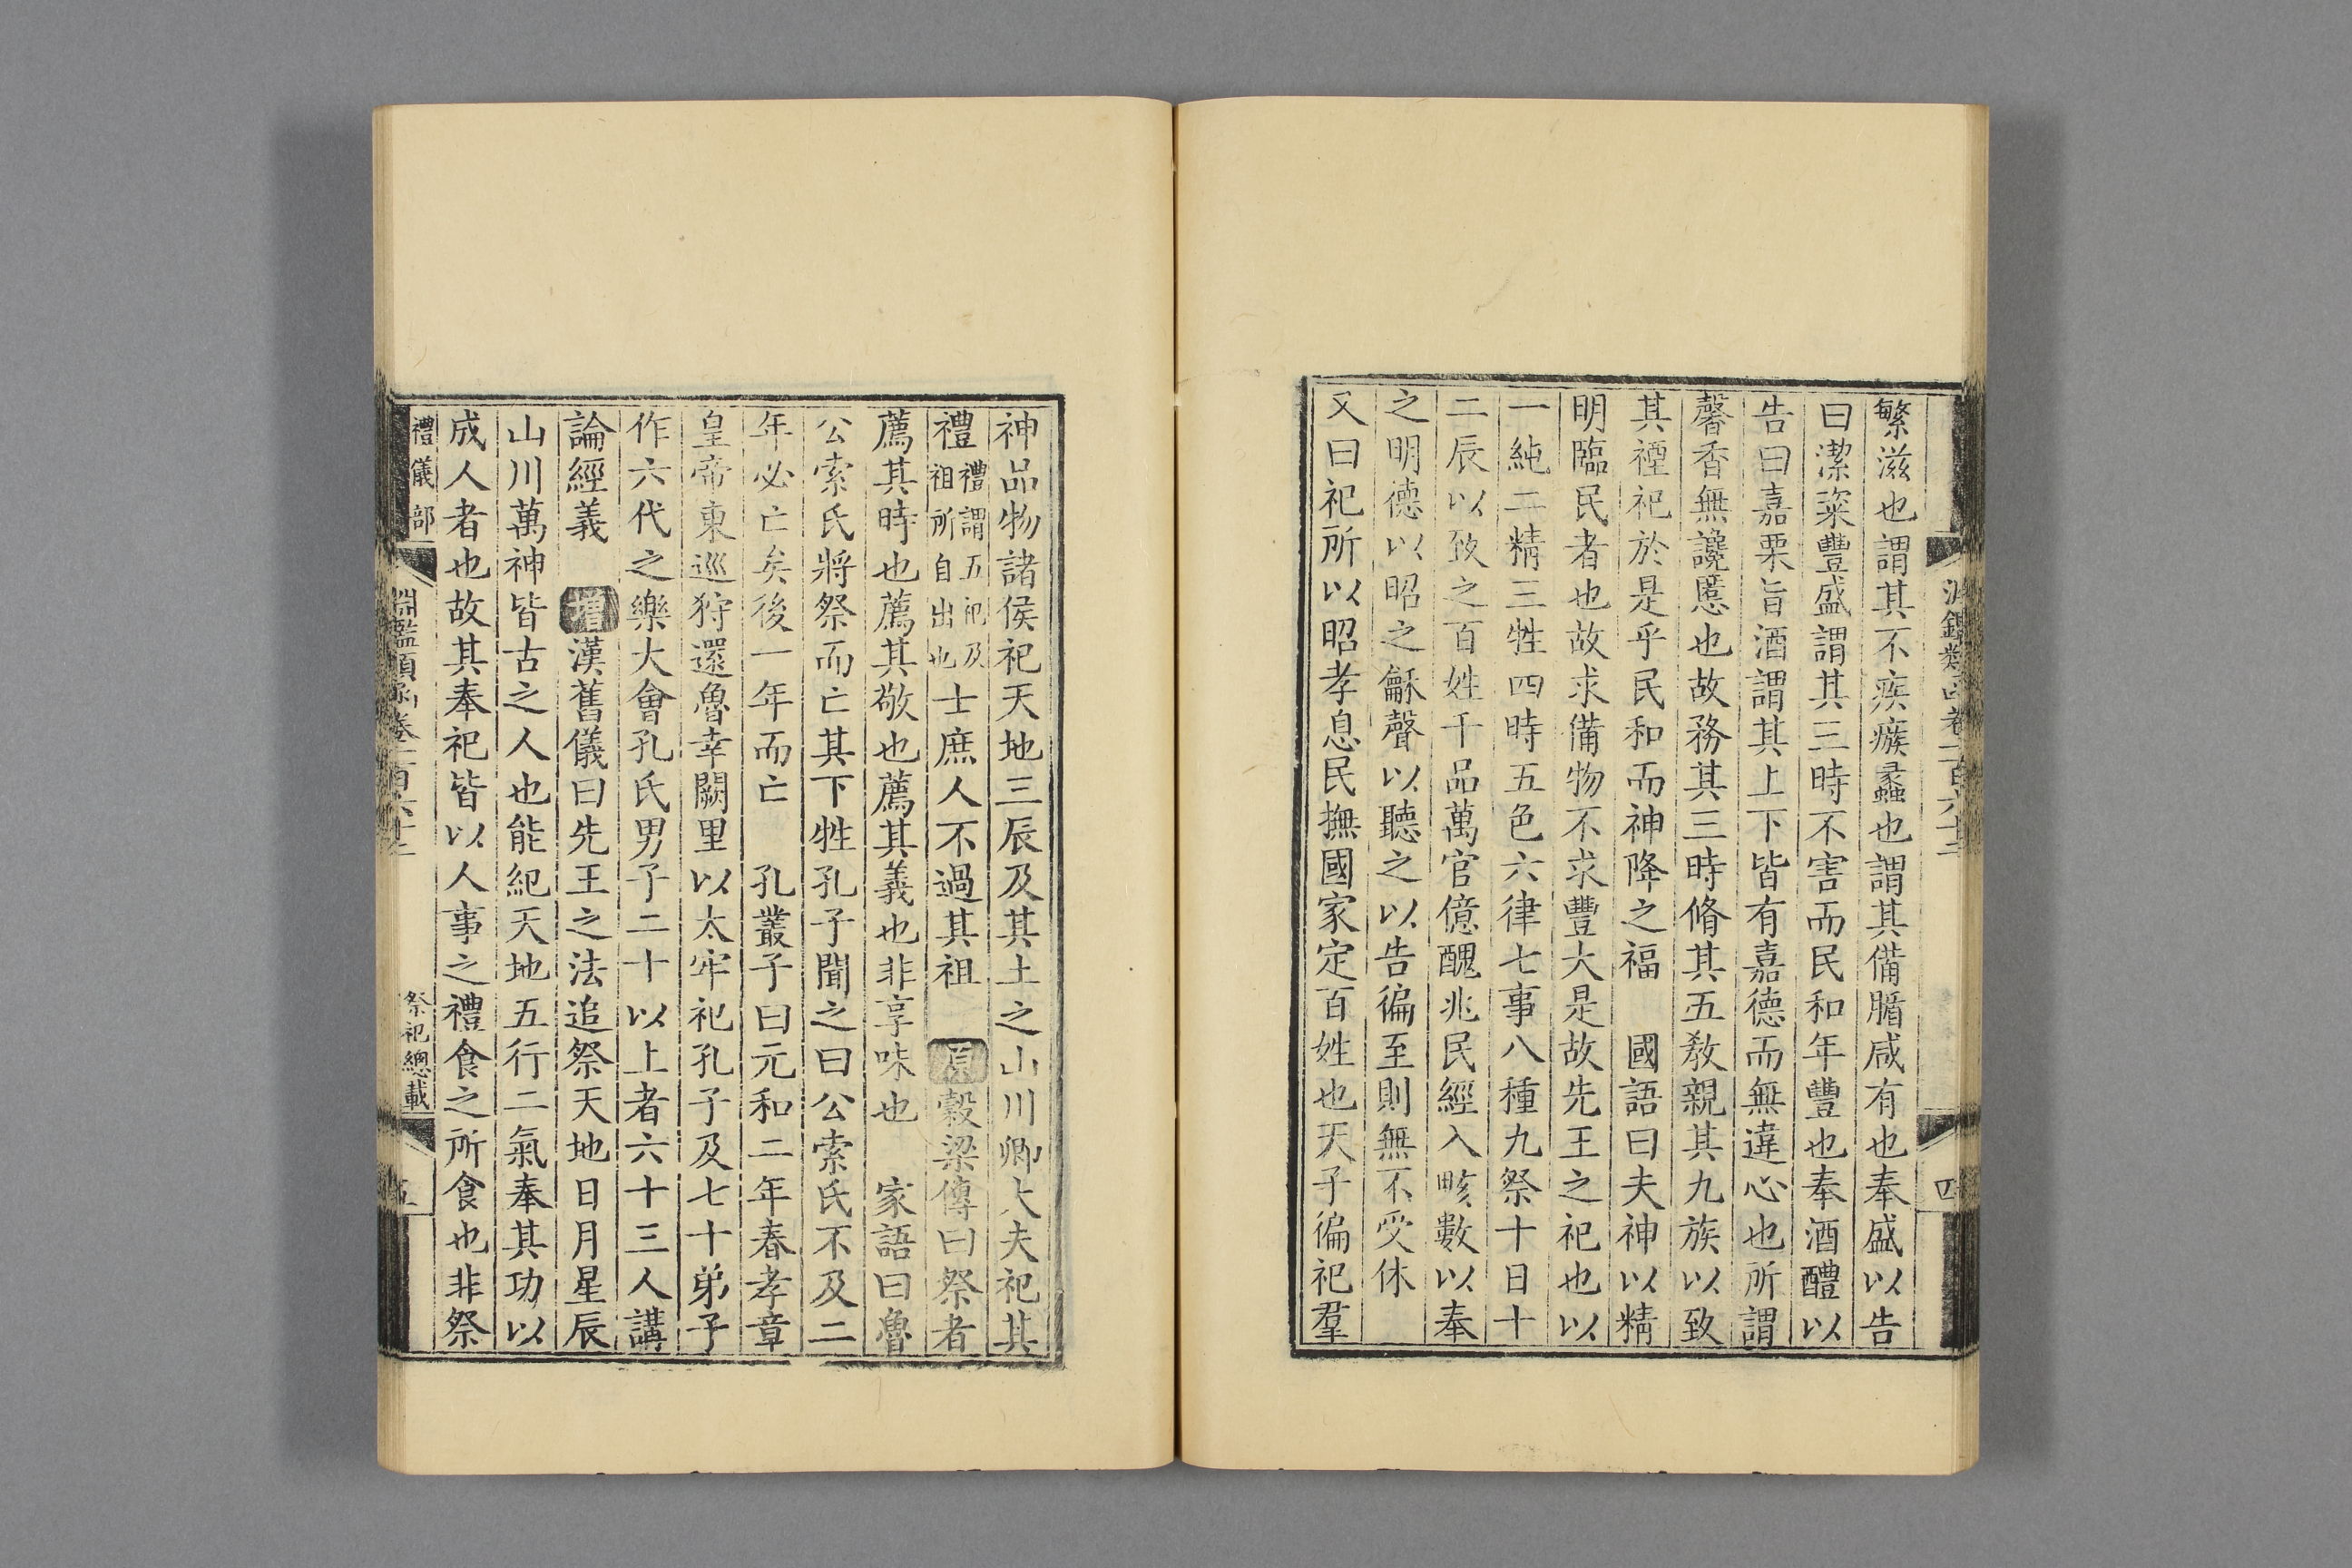 繁滋也謂其不疾瘯蠡也謂其備腯咸有也奉盛以告
曰潔粢豐盛謂其三時不害而民和年豐也奉酒醴以
告曰嘉栗旨酒謂其上下皆有嘉德而無違心也所謂
馨香無讒慝也故務其三時脩其五敎親其九族以致
其禋祀於是乎民和而神降之福　國語曰夫神以精
明臨民者也故求備物不求豐大是故先王之祀也以
一純二精三牲四時五色六律七事八種九祭十日十
二辰以致之百姓千品萬官億醜兆民經入畡數以奉
之明德以昭之龢聲以聽之以告徧至則無不受休
又曰祀所以昭孝息民撫國家定百姓也天子徧祀羣
淵鑑類函卷一百六十二
四
神品物諸侯祀天地三辰及其土之山川卿大夫祀其
禮禮謂五祀及祖所自出也士庶人不過其祖　原穀梁傳曰祭者
薦其時也薦其敬也薦其義也非享味也　家語曰魯
公索氏將祭而亡其下牲孔子聞之曰公索氏不及二
年必亡矣後一年而亡　孔叢子曰元和二年春孝章
皇帝東巡狩還魯幸闕里以太牢祀孔子及七十弟子
作六代之樂大會孔氏男子二十以上者六十三人講
論經義　增漢舊儀曰先王之法追祭天地日月星辰
山川萬神皆古之人也能紀天地五行二氣奉其功以
成人者也故其奉祀皆以人事之禮食之所食也非祭
禮儀部
淵鑑類函卷一百六十二
祭祀總載
五